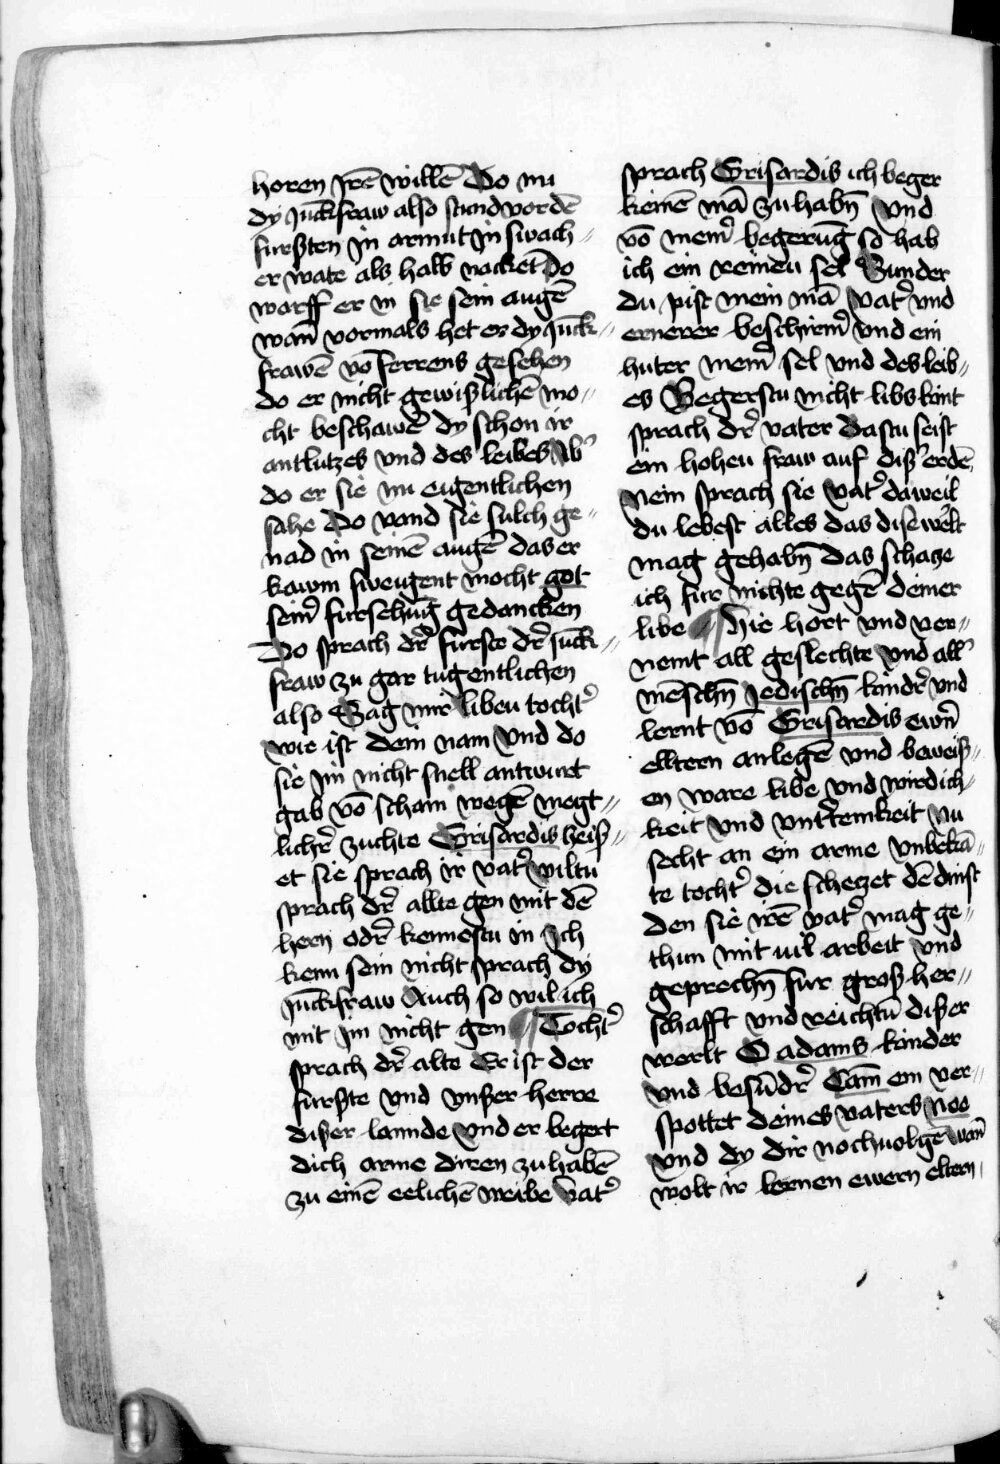 horen jrē willē Do nu
dy juckfraw also stund vor dē
furßten jn armut jn swach⸗
er wate als halb nacket Do
warff er in sie sein augē
wañ vormals het er dy juck⸗
frawē vō ferrens gesehen
do er nicht gewißlichē mo⸗
cht beschawē dy schon ir
antlutzes vnd des leibes Ab᾽
do er sie nu eugentlichen
sahe Do vand sie sulch ge⸗
nad in seinē augē das er
kawm sweugent mocht got
sem᾽ fursehūg gedancken
Do sprach dr᾽ furste dr᾽ juck⸗
fraw zu gar tugentlichen
also Sag mir libeu tocht᾽
wie ist dein nam Vnd do
sie jm nicht snell antwurt
gab vō scham wegē megt⸗
lichr᾽ zuchte Grisardis heiß⸗
et sie sprach ir vat᾽ wiltu
sprach dr᾽ allte gen mit dē
hern odr᾽ kennestu in Ich
kenn sein nicht sprach dy
juckfraw Auch so wil ich
mit jm nicht gen ¶ Tocht᾽
sprach dr᾽ alte Er ist der
furßte vnd vnßer herre
dißer lannde Vnd er begert
dich arme diren zu habē
zu einē eelichē weibe Vat᾽
sprach Grisardis ich beger
keinē mā zu habñ Vnd
vō mem᾽ begerūg so hab
ich ein reineu sel Sunder
du pist mein mā Vat᾽ vnd
ernerer beschirm᾽ vnd ein
huter mem᾽ sel vnd des leib⸗
es Begerstu nicht libs kint
sprach dr᾽ vater Dastu seist
ein hoheu fraw auf diß᾽ erdē
Nein sprach sie Vat᾽ daweil
du lebest alles das dise welt
mag gehabñ Das schatze
ich fur nichte gegē deiner
libe ¶ Hie hort vnd ver⸗
nemt all geslechte vnd all᾽
mēschñ Jedischñ kindr᾽ vnd
lernt vō Grisardis ewñ
elltern anlegē vnd beweiß⸗
en ware libe vnd wirdich⸗
keit vnd vntt᾽temkeit Nu
secht an ein arme vnbekā⸗
te tocht᾽ die schetzet dē dinst
den sie irē vat᾽ mag ge⸗
thun mit vil arbeit vnd
geprechñ fur groß her⸗
schafft vnd reichtū dißer
werlt O adams kinder
vnd besūdr᾽ Cam ein ver⸗
spottet deines vaters Noe
vnd dy dir nochuolgē wañ
wolt ir lernen ewern eltern